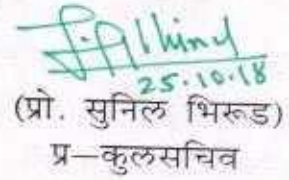 25.10.18
(प्रो. सुनिल भिरूड)
प्र—कुलसचिव